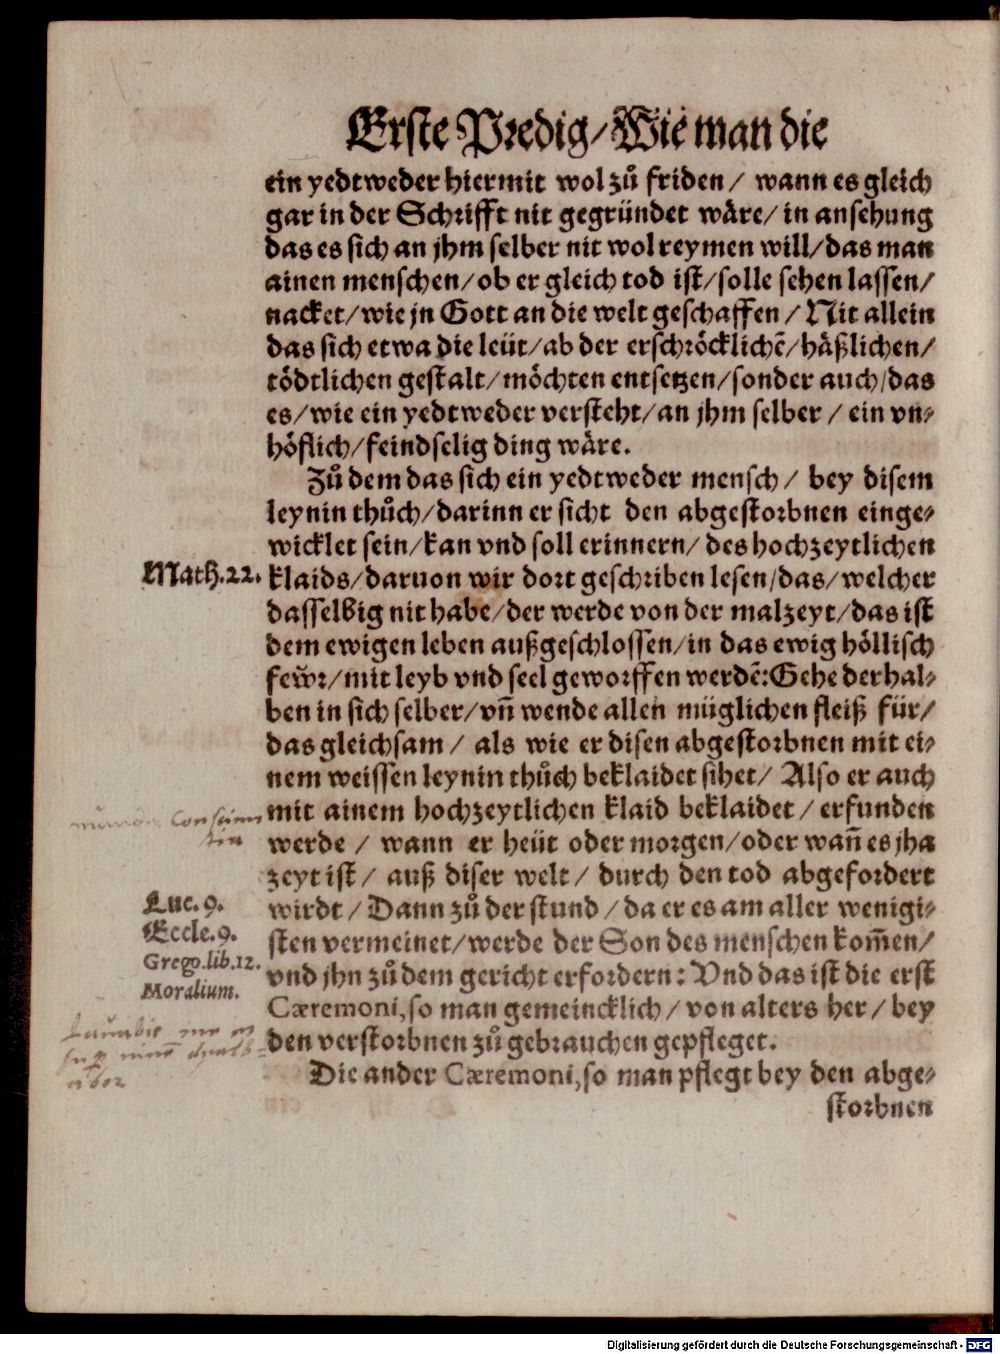 Erste Predig/Wie man die
ein yedtweder hiermit wol zů friden/ wann es gleich
gar in der Schrifft nit gegründet wäre/ in ansehung
das es sich an jhm selber nit wol reymen will/das man
ainen menschen/ob er gleich tod ist/solle sehen lassen/
nacket/wie jn Gott an die welt geschaffen/ Nit allein
das sich etwa die leüt/ab der erschröcklichẽ/häßlichen/
tödtlichen gestalt/möchten entsetzen/sonder auch/das
es/wie ein yedtweder versteht/an jhm selber/ ein vn-
höflich/feindselig ding wäre.
Zů dem das sich ein yedtweder mensch/ bey disem
leynin thůch/darinn er sicht den abgestorbnen einge-
wicklet sein/kan vnd soll erinnern/des hochzeytlichen
Math.22.
klaids/daruon wir dort geschriben lesen/das/welcher
dasselbig nit habe/der werde von der malzeyt/das ist
dem ewigen leben außgeschlossen/in das ewig höllisch
fewr/mit leyb vnd seel geworffen werdẽ:Gehe derhal-
ben in sich selber/vñ wende allen müglichen fleiß für/
das gleichsam/ als wie er disen abgestorbnen mit ei-
nem weissen leynin thůch beklaidet sihet/ Also er auch
mit ainem hochzeytlichen klaid beklaidet/erfunden
werde/ wann er heüt oder morgen/oder wañ es jha
zeyt ist/ auß diser welt/ durch den tod abgefordert
Luc. 9.
wirdt/ Dann zů der stund/da er es am aller wenigi-
Eccle.9.
sten vermeinet/werde der Son des menschen kom̃en/
Grego.lib.12.
Moralium.
vnd jhn zů dem gericht erfordern: Vnd das ist die erst
Cæremoni,so man gemeincklich/ von alters her/ bey
den verstorbnen zů gebrauchen gepfleget.
Die ander Cæremoni,so man pflegt bey den abge-
storbnen
Digitalisierung gefördert durch die Deutsche Forschungsgemeinschaft - DFG